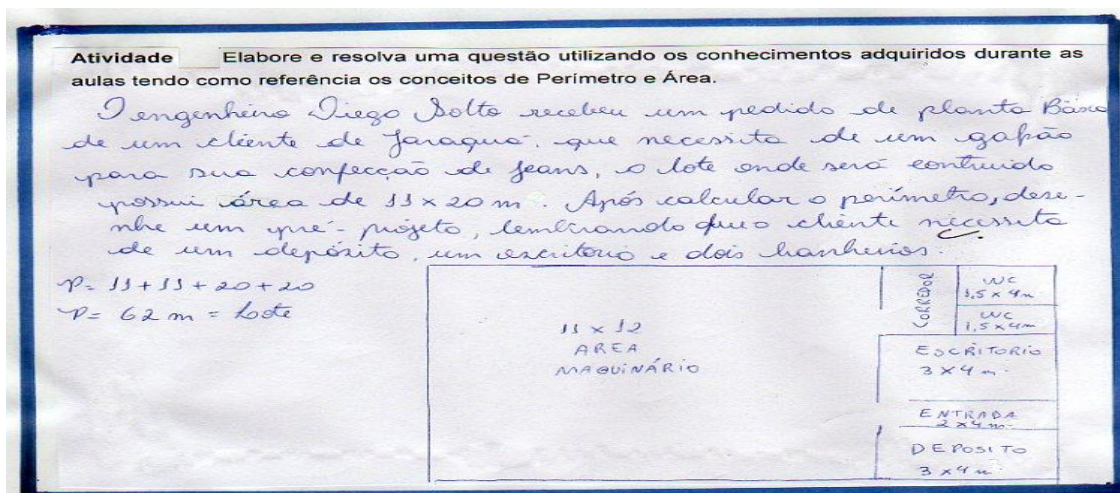 Atividade Elabore e resolva uma questão utilizando os conhecimentos adquiridos durante as
aulas tendo como referência os conceitos de Perímetro e Área.
O engenheiro Diego Solto recebeu um pedido de planta Básica
de um cliente de Jaraguá, que necessita de um galpão
para sua confecção de jeans, o lote onde será contruido
possui área de 11 x 20 m. Após calcular o perímetro, dese-
nhe um pré-projeto, lembrando que o cliente necessita
de um depósito, um escritorio e dois banheiros.
P= 11+11+20+20
P= 62 m = Lote
11 x 12
AREA
MAQUINÁRIO
CORREDOR
WC
1,5 x 4m
WC
1,5 x 4m
ESCRITORIO
3 x 4 m.
ENTRADA
2 x 4 m.
DEPOSITO
3 x 4 m